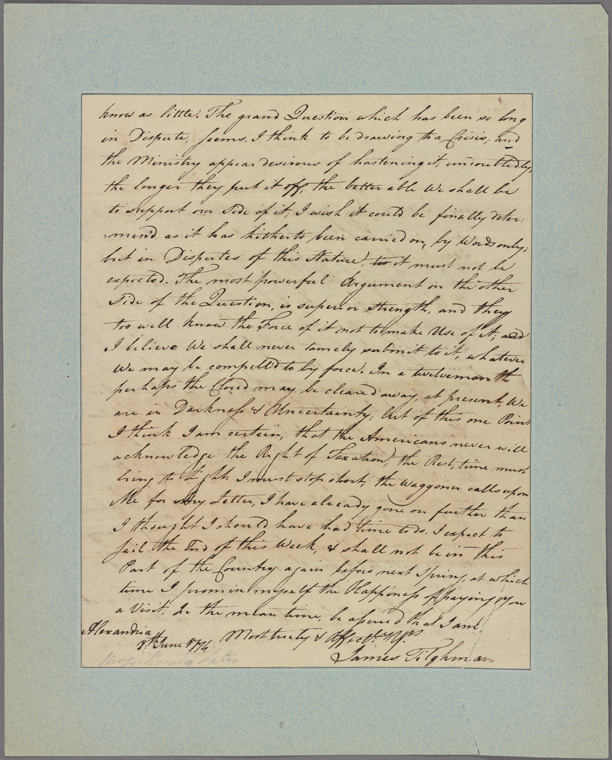 know as little. The grand Question which has been so long
in Dispute, seems I think to be drawing to a Crisis, and
the Ministry appear desirous of hastening it, undoubtedly,
the longer they put it off, the better able We shall be
to support our Side of it, I wish it could be finally deter:
:mined as it has hitherto been carried on, by Words only;
but in Disputes of this Nature, it must not be
expected. The most powerful Argument on the other
Side of the Question, is superior strength, and they
too well know the Force of it not to make Use of it, and
I believe We shall never tamely submit to it, whatever
We may be compelled to by force. In a twelvemonth
perhaps the Cloud may be cleared away, at present, We
are in Darkness & Uncertainty; but of this one Point
I think I am certain, that the Americans never will
acknowledge the Right of Taxation, the Rest, time must
bring to Light. I must stop short, the Waggoner calls upon
Me for my Letter, I have already gone on further than
I thought I should have had time to do. I expect to
sail the End of this Week, & shall not be in this
Part of the Country again before next Spring, at which
time I promise myself the Happiness of paying you
a Visit. In the mean time, be assured that I am
Most truly & Affectly. Yrs.
Alexandria
8th June 1774
James Tilghman